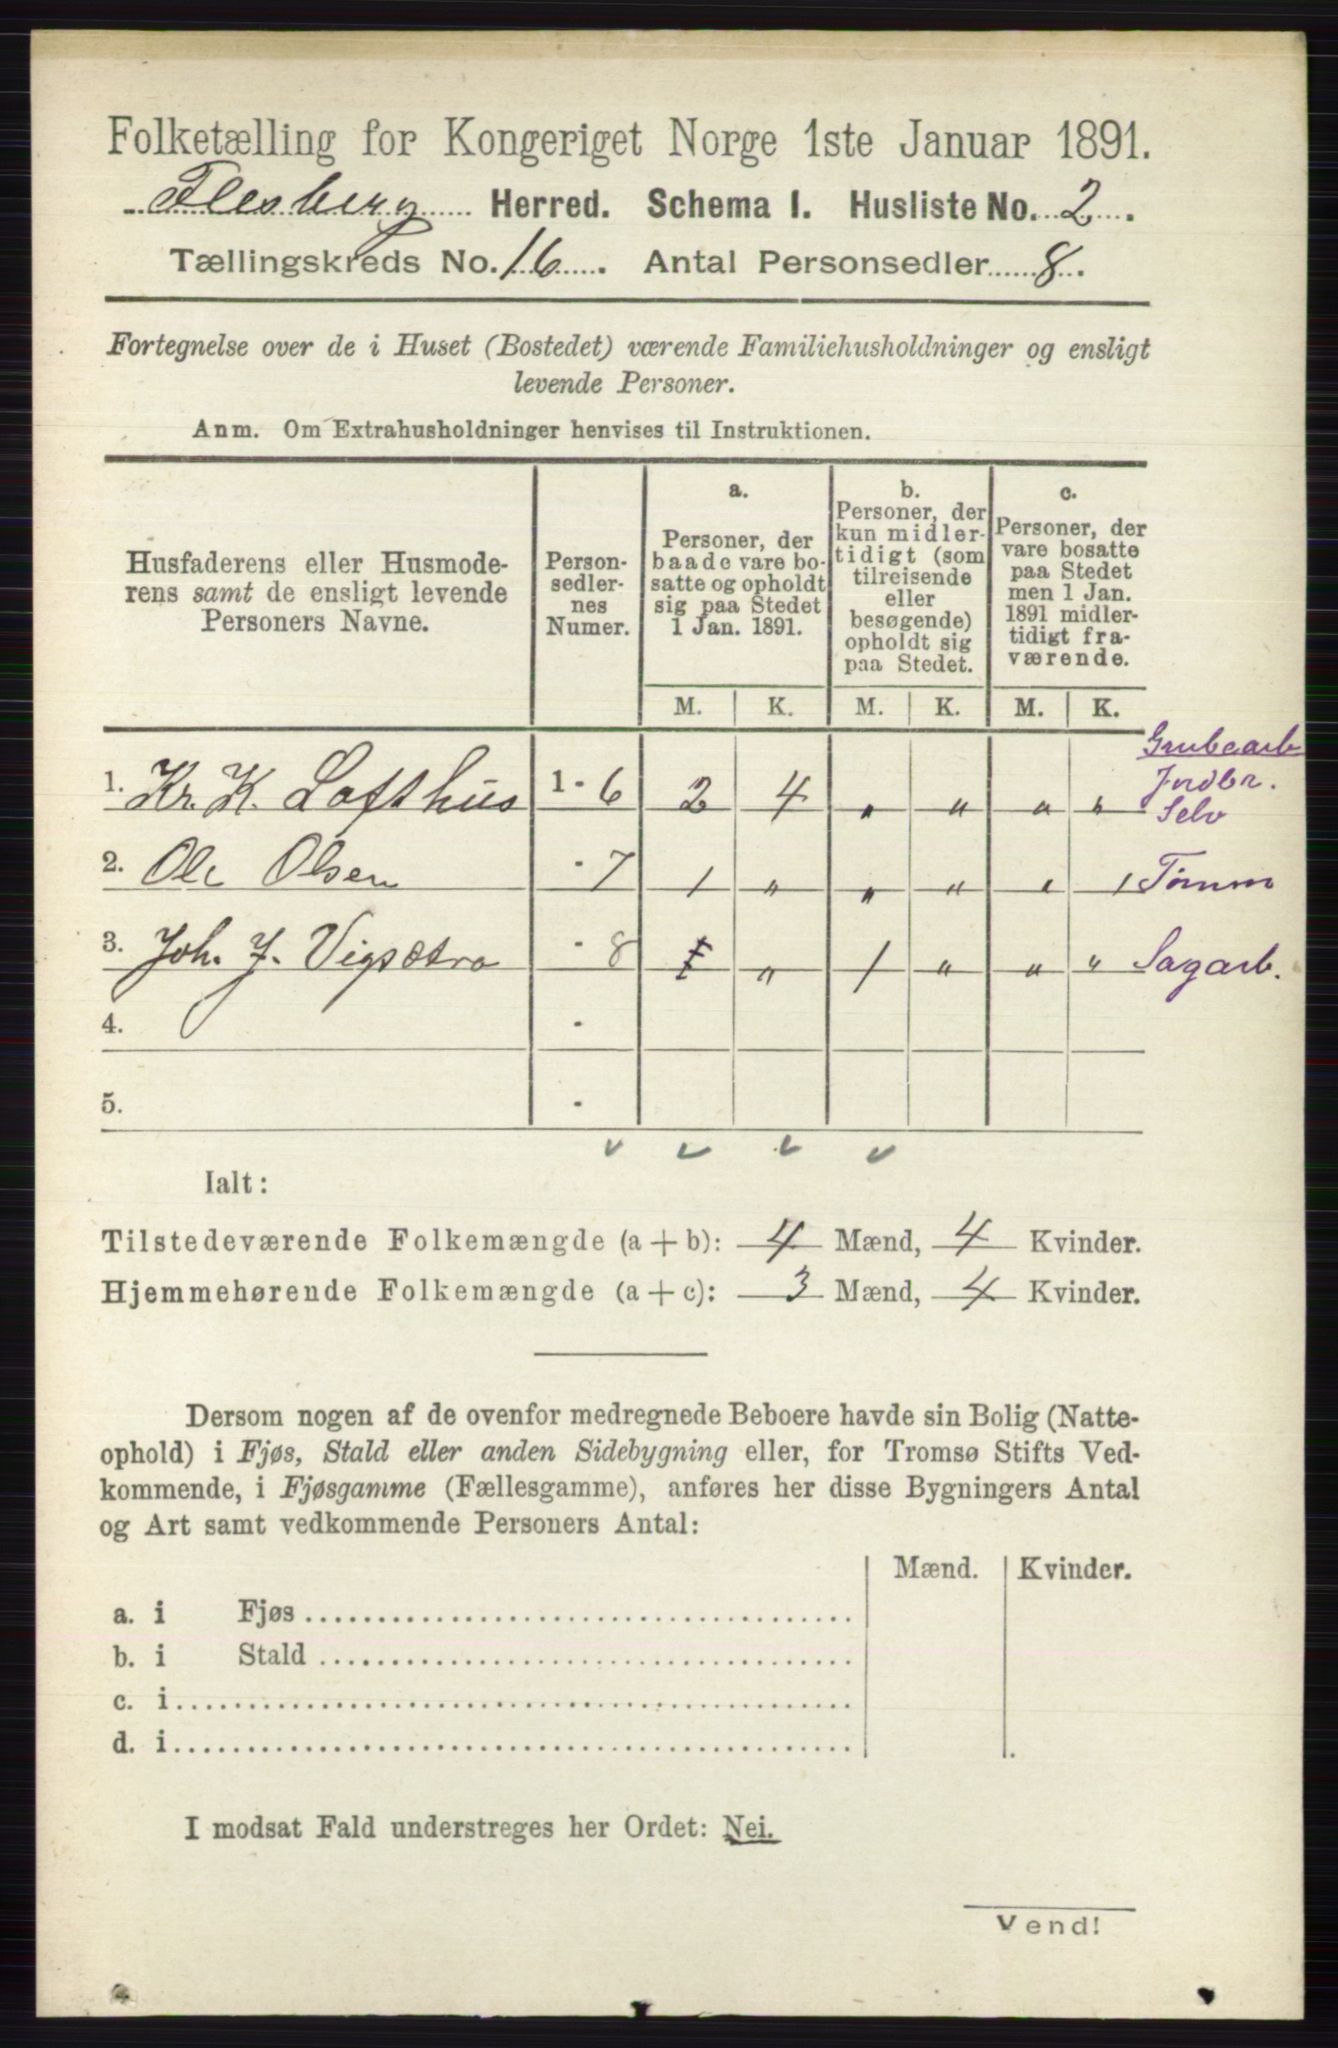 Folketælling for Kongeriget Norge 1ste Januar 1891.
Flesberg Herred. Schema I. Husliste No. 2.
Tællingskreds No. 16. Antal Personsedler 8.
Fortegnelse over de i Huset (Bostedet) værende Familiehusholdninger og ensligt
levende Personer.
Anm. Om Extrahusholdninger henvises til Instruktionen.
Husfaderens eller Husmode-
rens samt de ensligt levende
Personers Navne.
Person-
sedler-
nes
Numer.
a.
Personer, der
baade vare bo-
satte og opholdt
sig paa Stedet
1 Jan. 1891.
b.
Personer, der
kun midler-
tidigt (som
tilreisende
eller
besøgende)
opholdt sig
paa Stedet.
c.
Personer, der
vare bosatte
paa Stedet
men 1 Jan.
1891 midler-
tidigt fra-
værende.
M. K. M. K. M. K.
Grubearb
1. Kr. K. Lofthus 1 - 6 2 4 " " " " Indbr.
Selv
2. Ole Olsen - 7 1 " " " " " Tømm
3. Joh. J. Vigsætra - 8 1 " 1 " " " Sagarb.
4. -
5. -
Ialt:
Tilstedeværende Folkemængde (a + b): 4 Mænd, 4 Kvinder.
Hjemmehørende Folkemængde (a + c): 3 Mænd, 4 Kvinder.
Dersom nogen af de ovenfor medregnede Beboere havde sin Bolig (Natte-
ophold) i Fjøs, Stald eller anden Sidebygning eller, for Tromsø Stifts Ved-
kommende, i Fjøsgamme (Fællesgamme), anføres her disse Bygningers Antal
og Art samt vedkommende Personers Antal:
Mænd. Kvinder.
a. i Fjøs
b. i Stald
c. i
d. i
I modsat Fald understreges her Ordet: Nei.
Vend!